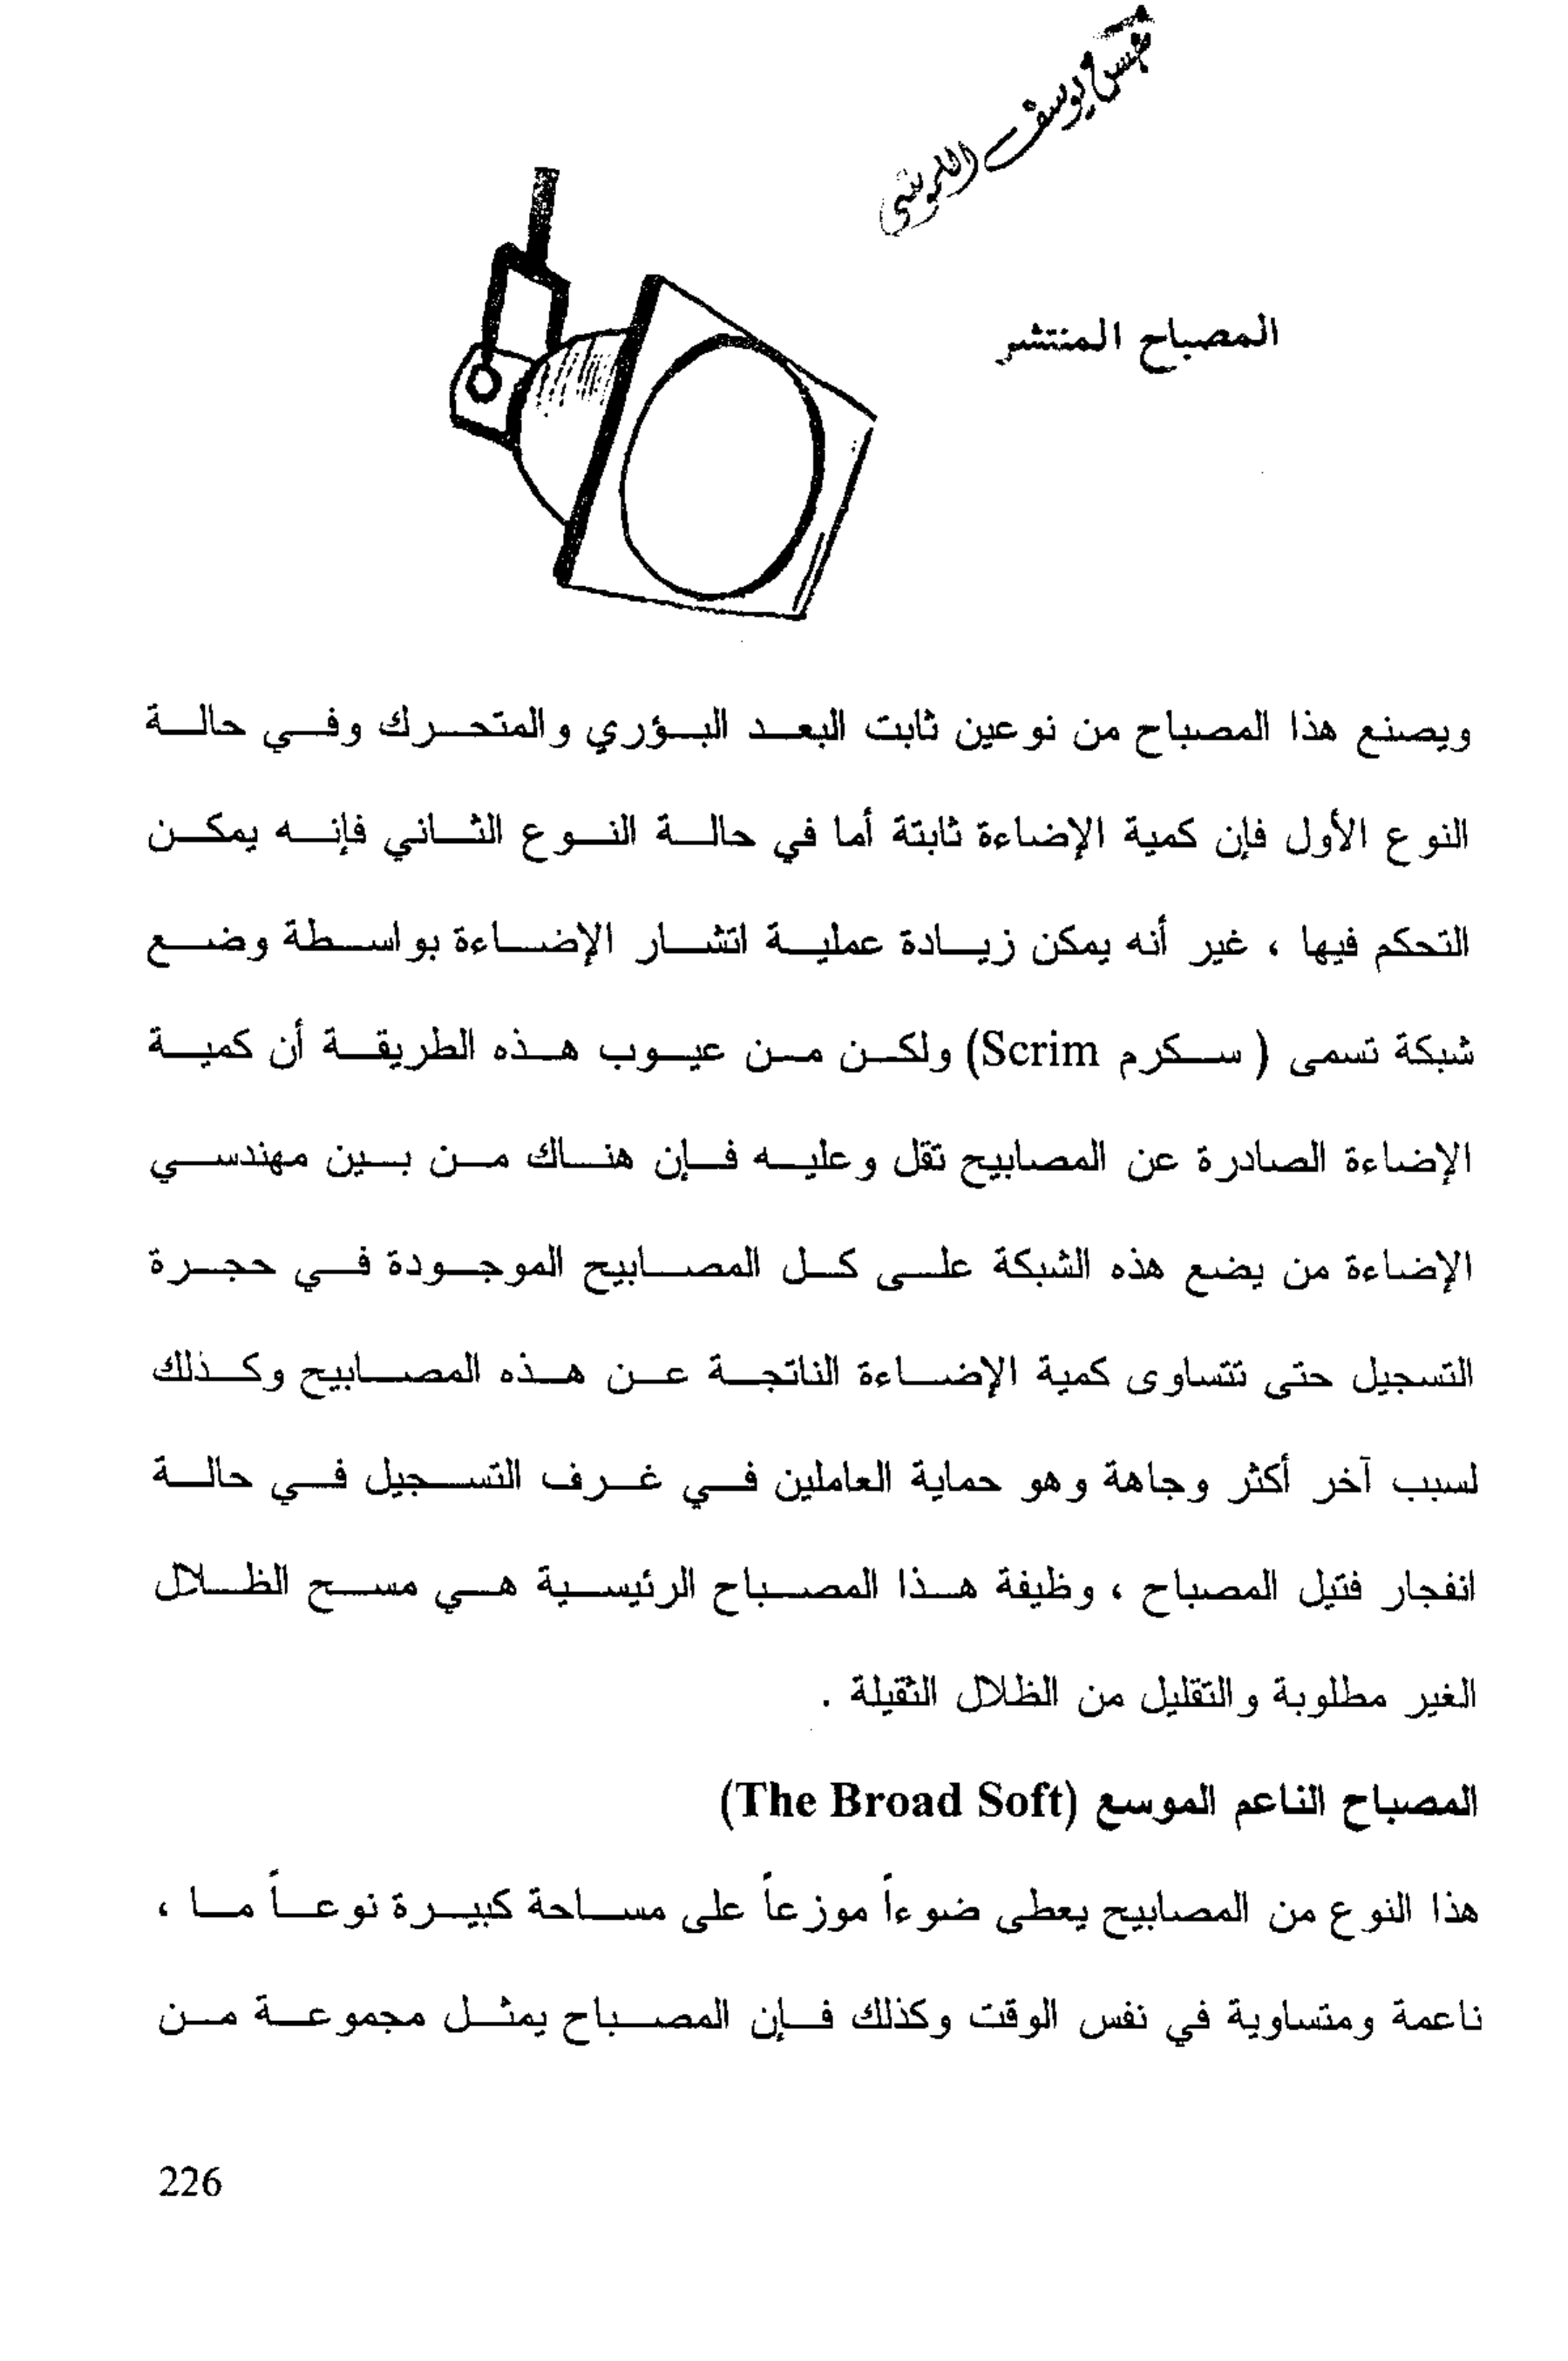 يوسف
المصباح المنتشر
ويصنع هذا المصباح من نوعين ثابت البعد البؤري والمتحرك وفي حالة
النوع الأول فإن كمية الإضاءة ثابتة أما في حالة النوع الثاني فإنه يمكن
التحكم فيها ، غير أنه يمكن زيادة عملية اتشار الإضاءة بواسطة وضع
شبكة تسمى ( سكرم Scrim) ولكن من عيوب هذه الطريقة أن كمية
الإضاءة الصادرة عن المصابيح تقل وعليه فإن هناك من بين مهندسي
الإضاءة من يضع هذه الشبكة على كل المصابيح الموجودة في حجرة
التسجيل حتى تتساوى كمية الإضاءة الناتجة عن هذه المصابيح وكذلك
لسبب آخر أكثر وجاهة وهو حماية العاملين في غرف التسجيل في حالة
انفجار فتيل المصباح ، وظيفة هذا المصباح الرئيسية هي مسح الظلال
الغير مطلوبة والتقليل من الظلال الثقيلة .
المصباح الناعم الموسع (The Broad Soft)
هذا النوع من المصابيح يعطى ضوءاً موزعاً على مساحة كبيرة نوعاً ما ،
ناعمة ومتساوية في نفس الوقت وكذلك فإن المصباح يمثل مجموعة من
226